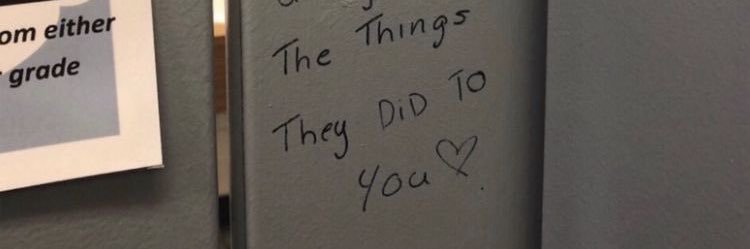 om either
grade
The Things
They DiD To
You ♡.